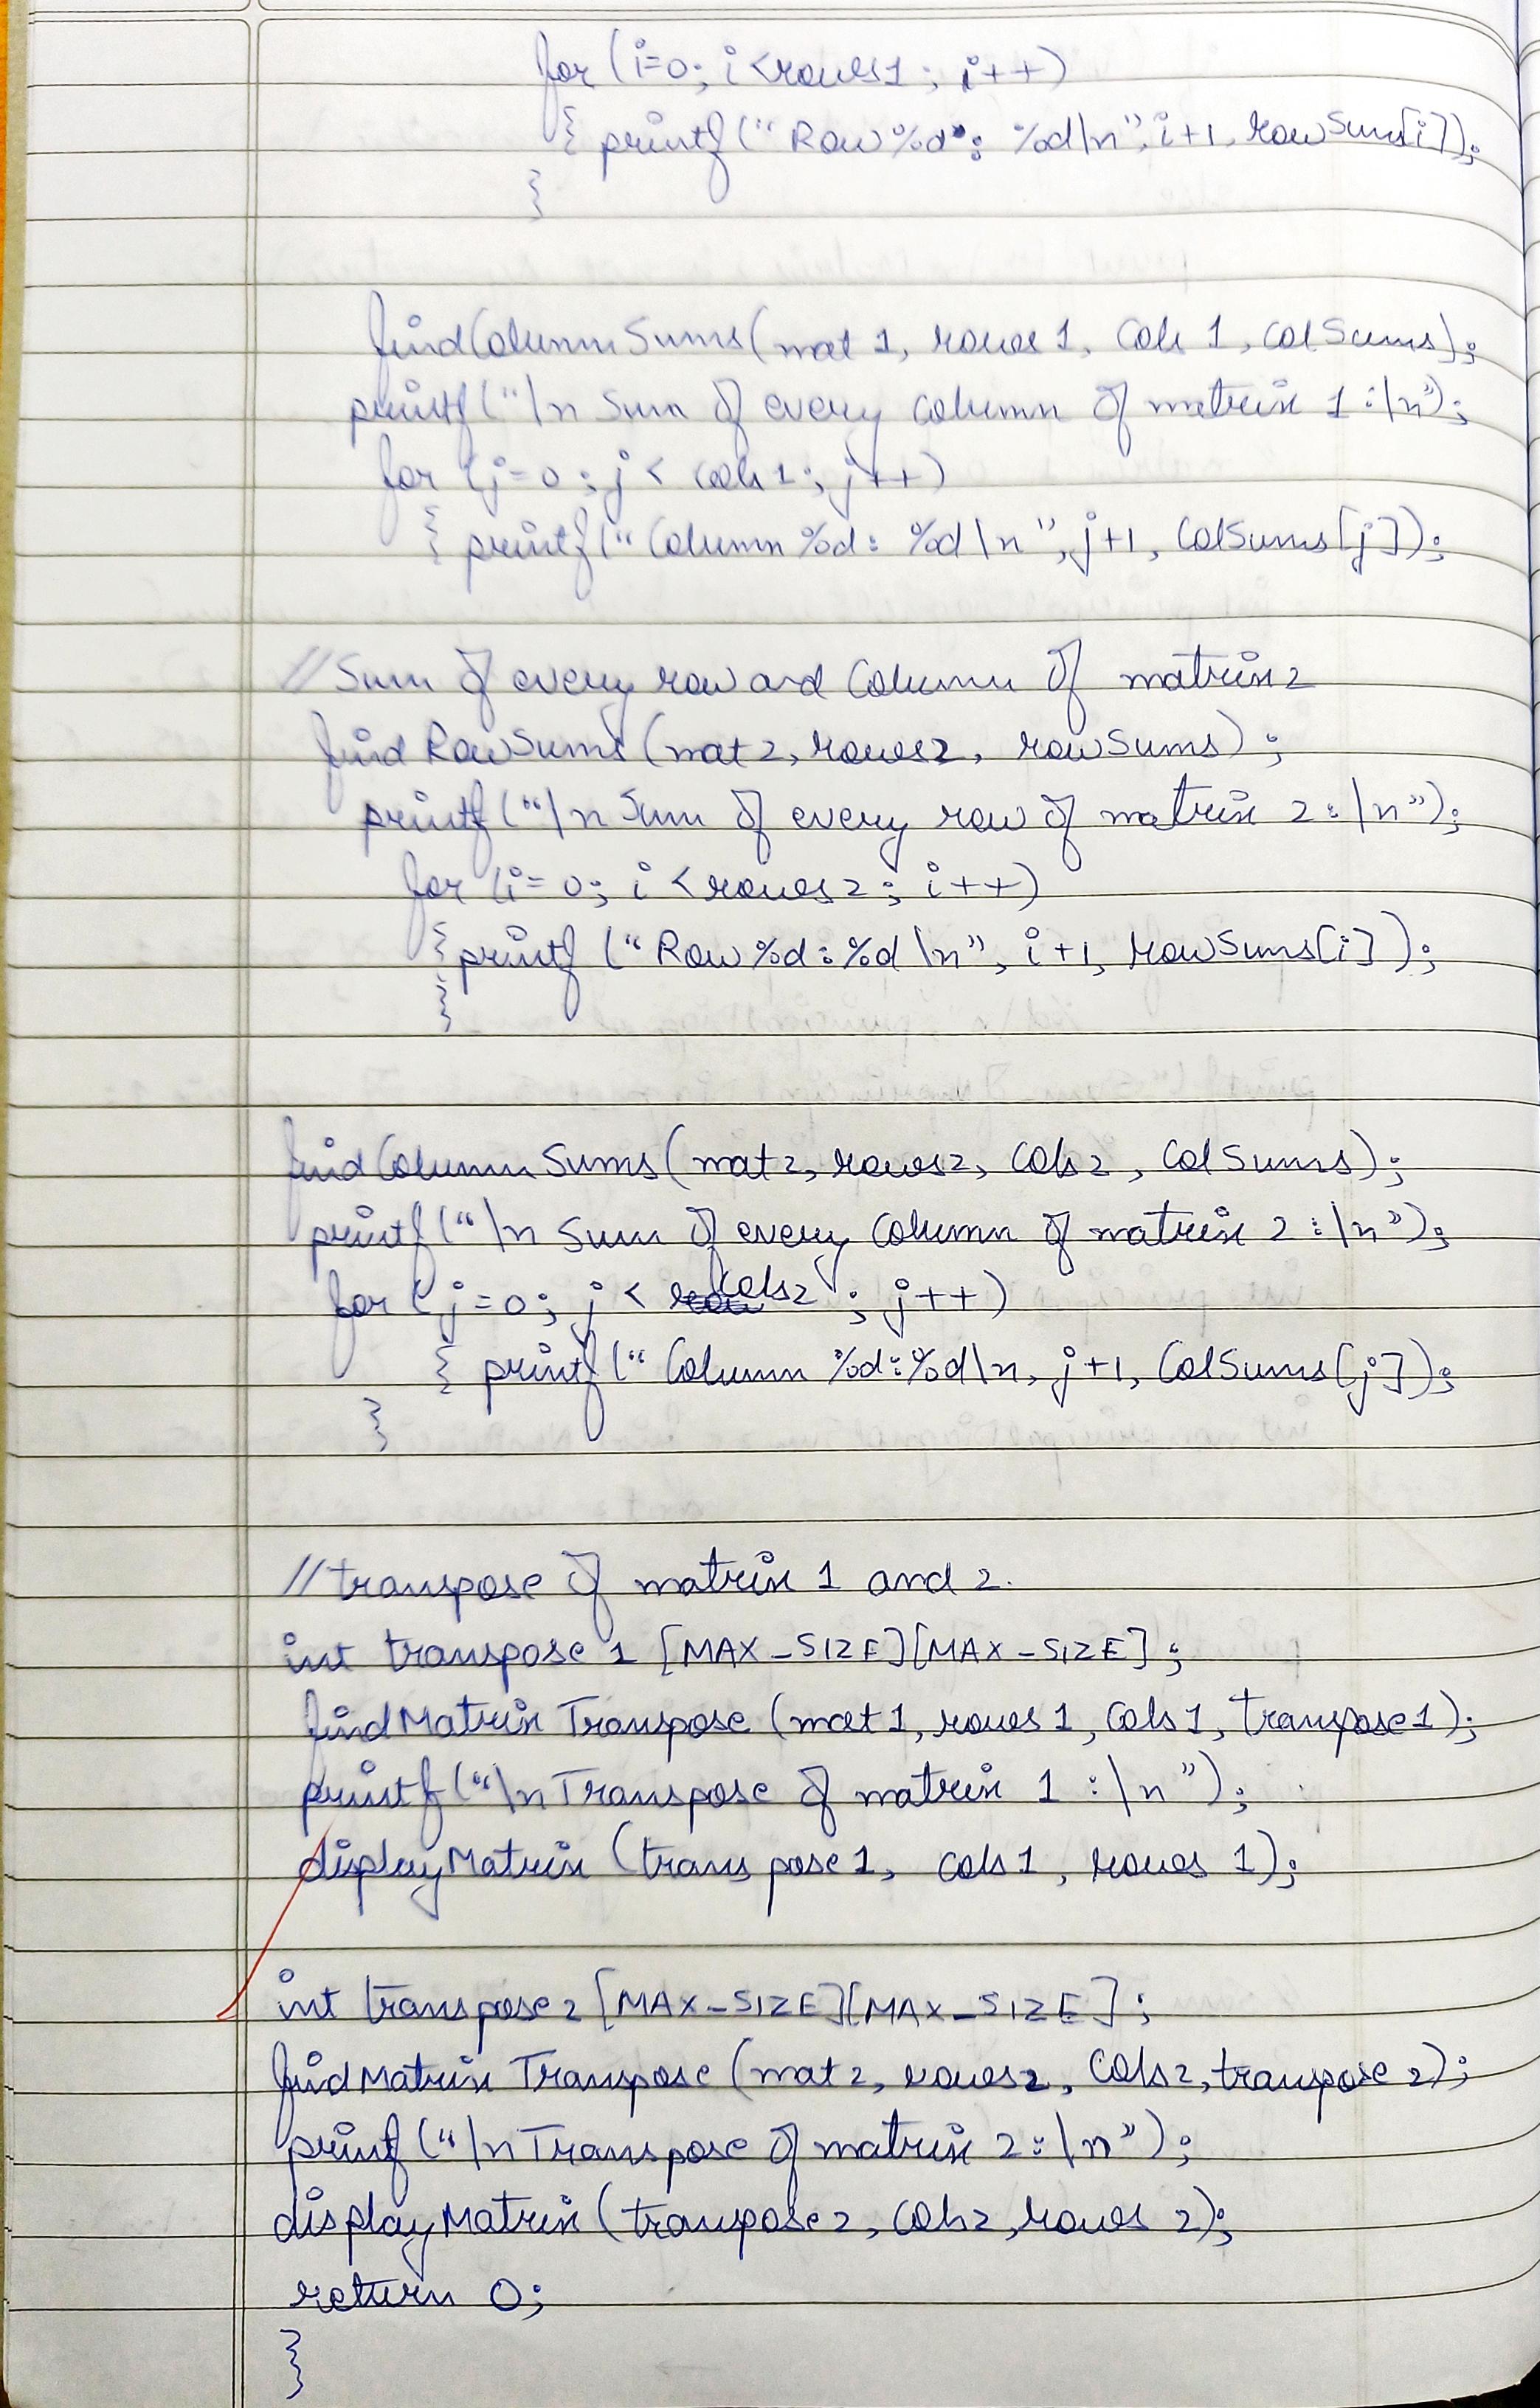 for (i=0; i<rows1; i++)
{ printf("Row%d: %d\n", i+1, rowSums[i]);
}
findColumnSums(mat1, rows1, cols1, colSums);
printf("\n Sum of every column of matrix 1:\n");
for (j=0; j< cols1; j++)
{ printf("Column %d: %d\n", j+1, ColSums[j]);
//Sum of every row and Column of matrix2
find RowSums (mat2, rows2, rowSums);
printf("\n Sum of every row of matrix 2:\n");
for (i=0; i<rows2; i++)
{printf ("Row%d:%d\n", i+1, rowSums[i]);
}
findColumnSums(mat2, rows2, Cols2, ColSums);
printf("\n Sum of every Column of matrix 2:\n");
for (j=0; j< cols2; j++)
{ printf("Column %d:%d\n, j+1, ColSums[j]);
}
//transpose of matrix 1 and 2.
int transpose1 [MAX_SIZE][MAX_SIZE];
findMatrixTranspose (mat1, rows1, Cols1, transpose1);
printf("\nTranspose of matrix 1:\n");
displayMatrix (transpose1, cols1, rows 1);
int transpose2 [MAX_SIZE][MAX_SIZE];
findMatrix Transpose (mat2, rows2, Cols2, transpose2);
printf ("\nTranspose of matrix 2:\n");
displayMatrix (transpose2, cols2, rows 2);
return 0;
}